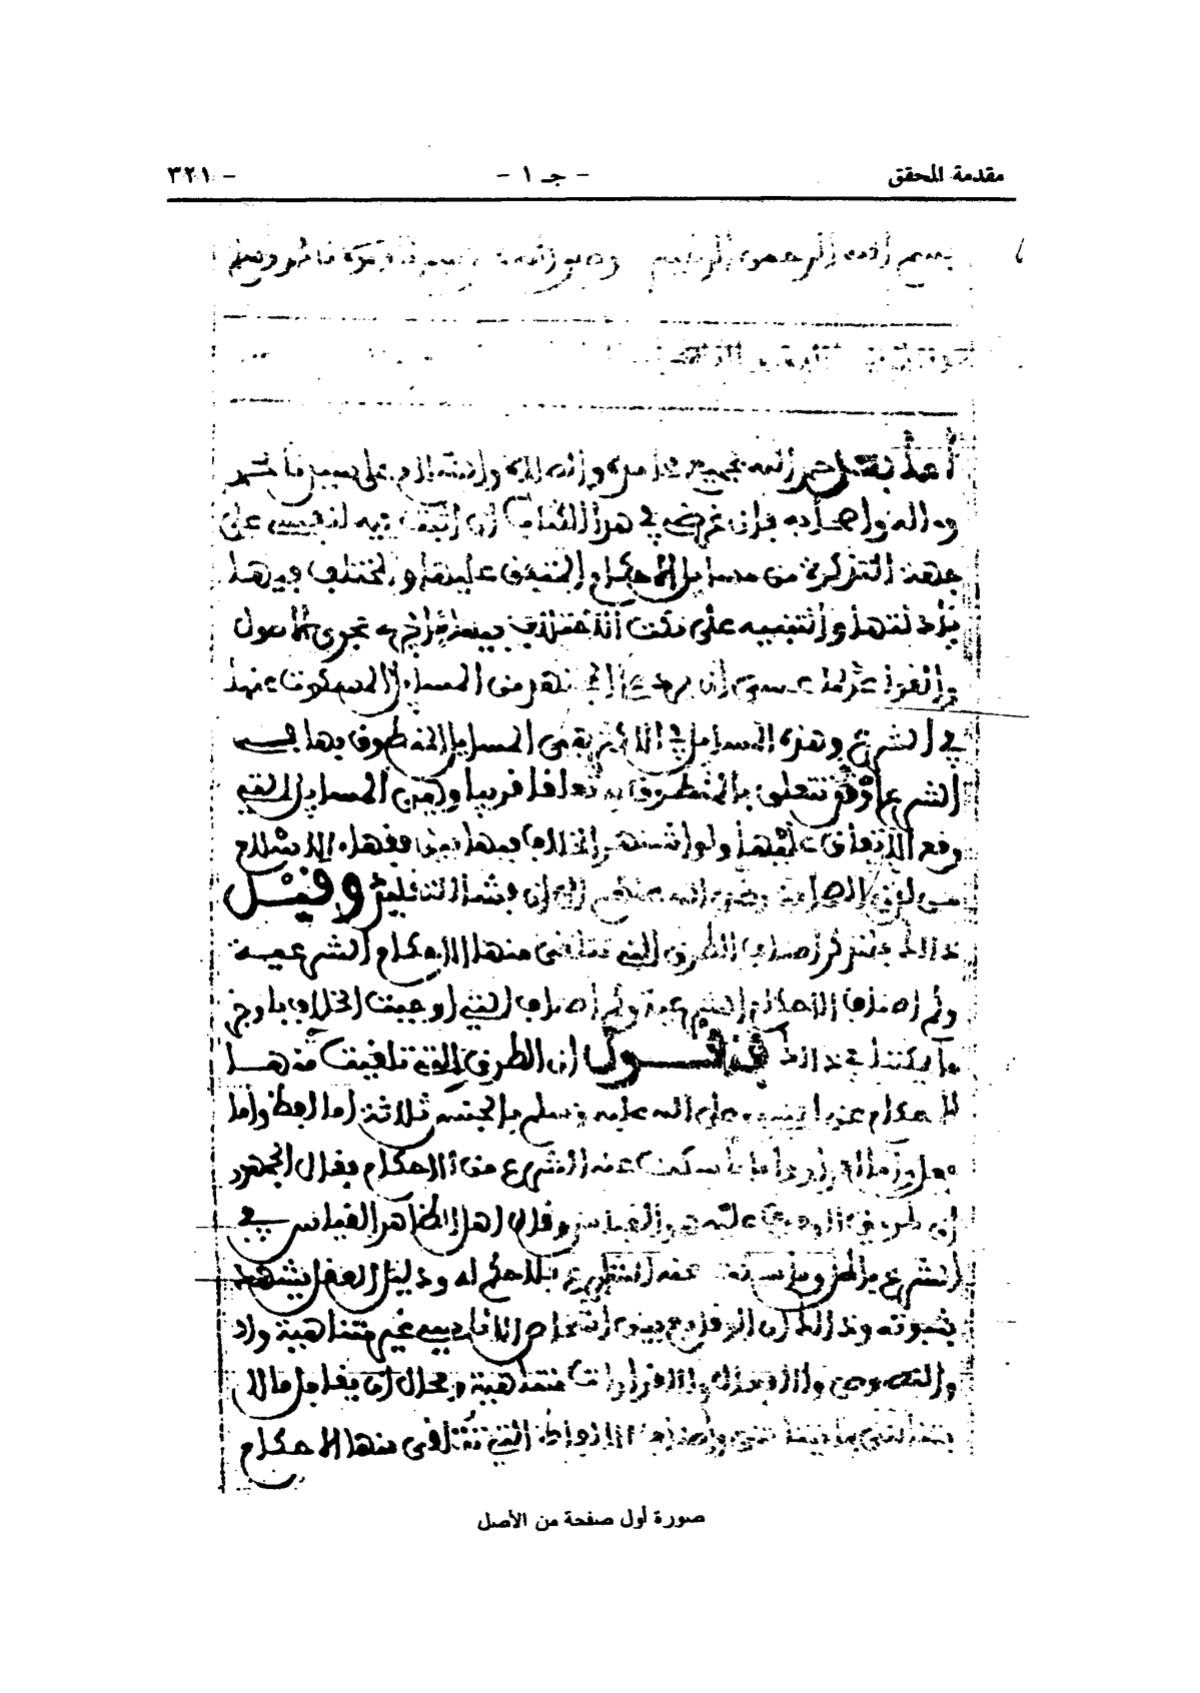 مقدمة المحقق - جـ ١ - - ٣٢١
بسم الله الرحمن الرحيم
أما بعد حمد الله بجميع محامده والصلاة والسلام على
وءاله وأصحابه فإن غرضي في هذا الكتاب أن أثبت فيه لنفسي على
جهة التذكرة من مسايل الأحكام المتفق عليها والمختلف فيها
بأدلتها والتنبيه على نكت الخلاف فيها ما يجري مجرى الأصول
والقواعد لما عسى أن يرد على المجتهد من المسايل المسكوت عنها
في الشرع وهذه المسايل في الأكثر هي المسايل المنطوق بها في
الشرع أو تتعلق بالمنطوق به تعلقا قريبا وهي المسايل التي
وقع الاتفاق عليها واشتهر الخلاف فيها بين فقهاء الاسلام
من لدن الصحابة رضي الله عنهم إلى أن فشا التقليد وقبل
ذالك فلنذكر أصناف الطرق التي تتلقى منها الأحكام الشرعية
وكم أصناف الأحكام الشرعية وكم أصناف التي أوجبت الخلاف بأوجز
ما يمكننا في ذالك فنقول إن الطرق التي تلقيت منها
الأحكام عن النبي صلى الله عليه وسلم بالجنس ثلاثة إما لفظ وإما
فعل وإما إقرار وأما ما سكت عنه الشرع من الأحكام فقال الجمهور
إن طريق الوقوف عليه هو القياس وقال أهل الظاهر القياس في
الشرع باطل وما سكت عنه الشرع فلا حكم له ودليل العقل يشهد
بثبوته وذالك أن الوقايع بين أشخاص الأناسي غير متناهية
والنصوص والأفعال والاقرارات متناهية ومحال أن يقابل ما لا
يتناهى بما يتناهى وأصناف الألفاظ التي تتلقى منها الأحكام
صورة أول صفحة من الأصل